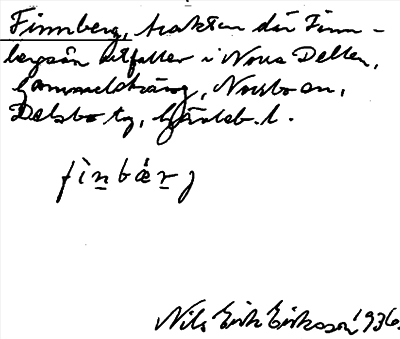 Finnberg, trakten där Finn-
bergsån utfaller i Norra Dellen,
Gammelsträng, Norrbo sn,
Delsbo tg, Gävleb. l.
fìn̲bær̲j
Nils Erik Eriksson 1936.